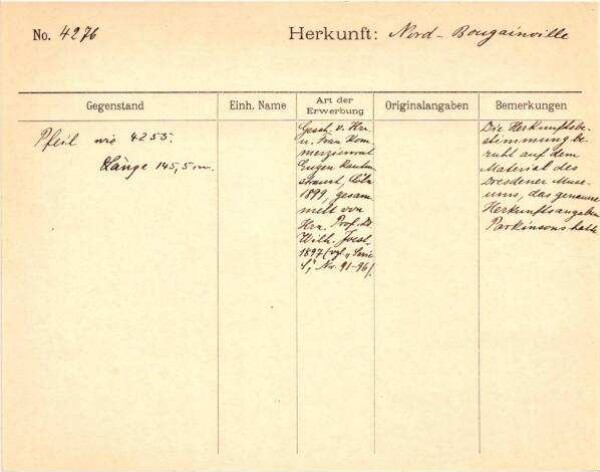 No. 4276
Herkunft: Nord-Bougainville
Gegenstand
Einh. Name
Art der
Erwerbung
Originalangaben
Bemerkungen
Pfeil wie 4253.
Länge 145,5 cm.
Gesch. v. Hrn
u. Frau Kom
merzienrat
Eugen Rauten
strauch, Cöln
1899, gesam
melt von
Hrn. Prof. Dr
Wilh. Joest,
1897 (vgl. "Serie
I," Nr. 91-96).
Die Herkunftsbe-
stimmung be-
ruht auf dem
Material des
Dresdener Muse-
ums, das genaue
Herkunftsangaben
Parkinsons hatte